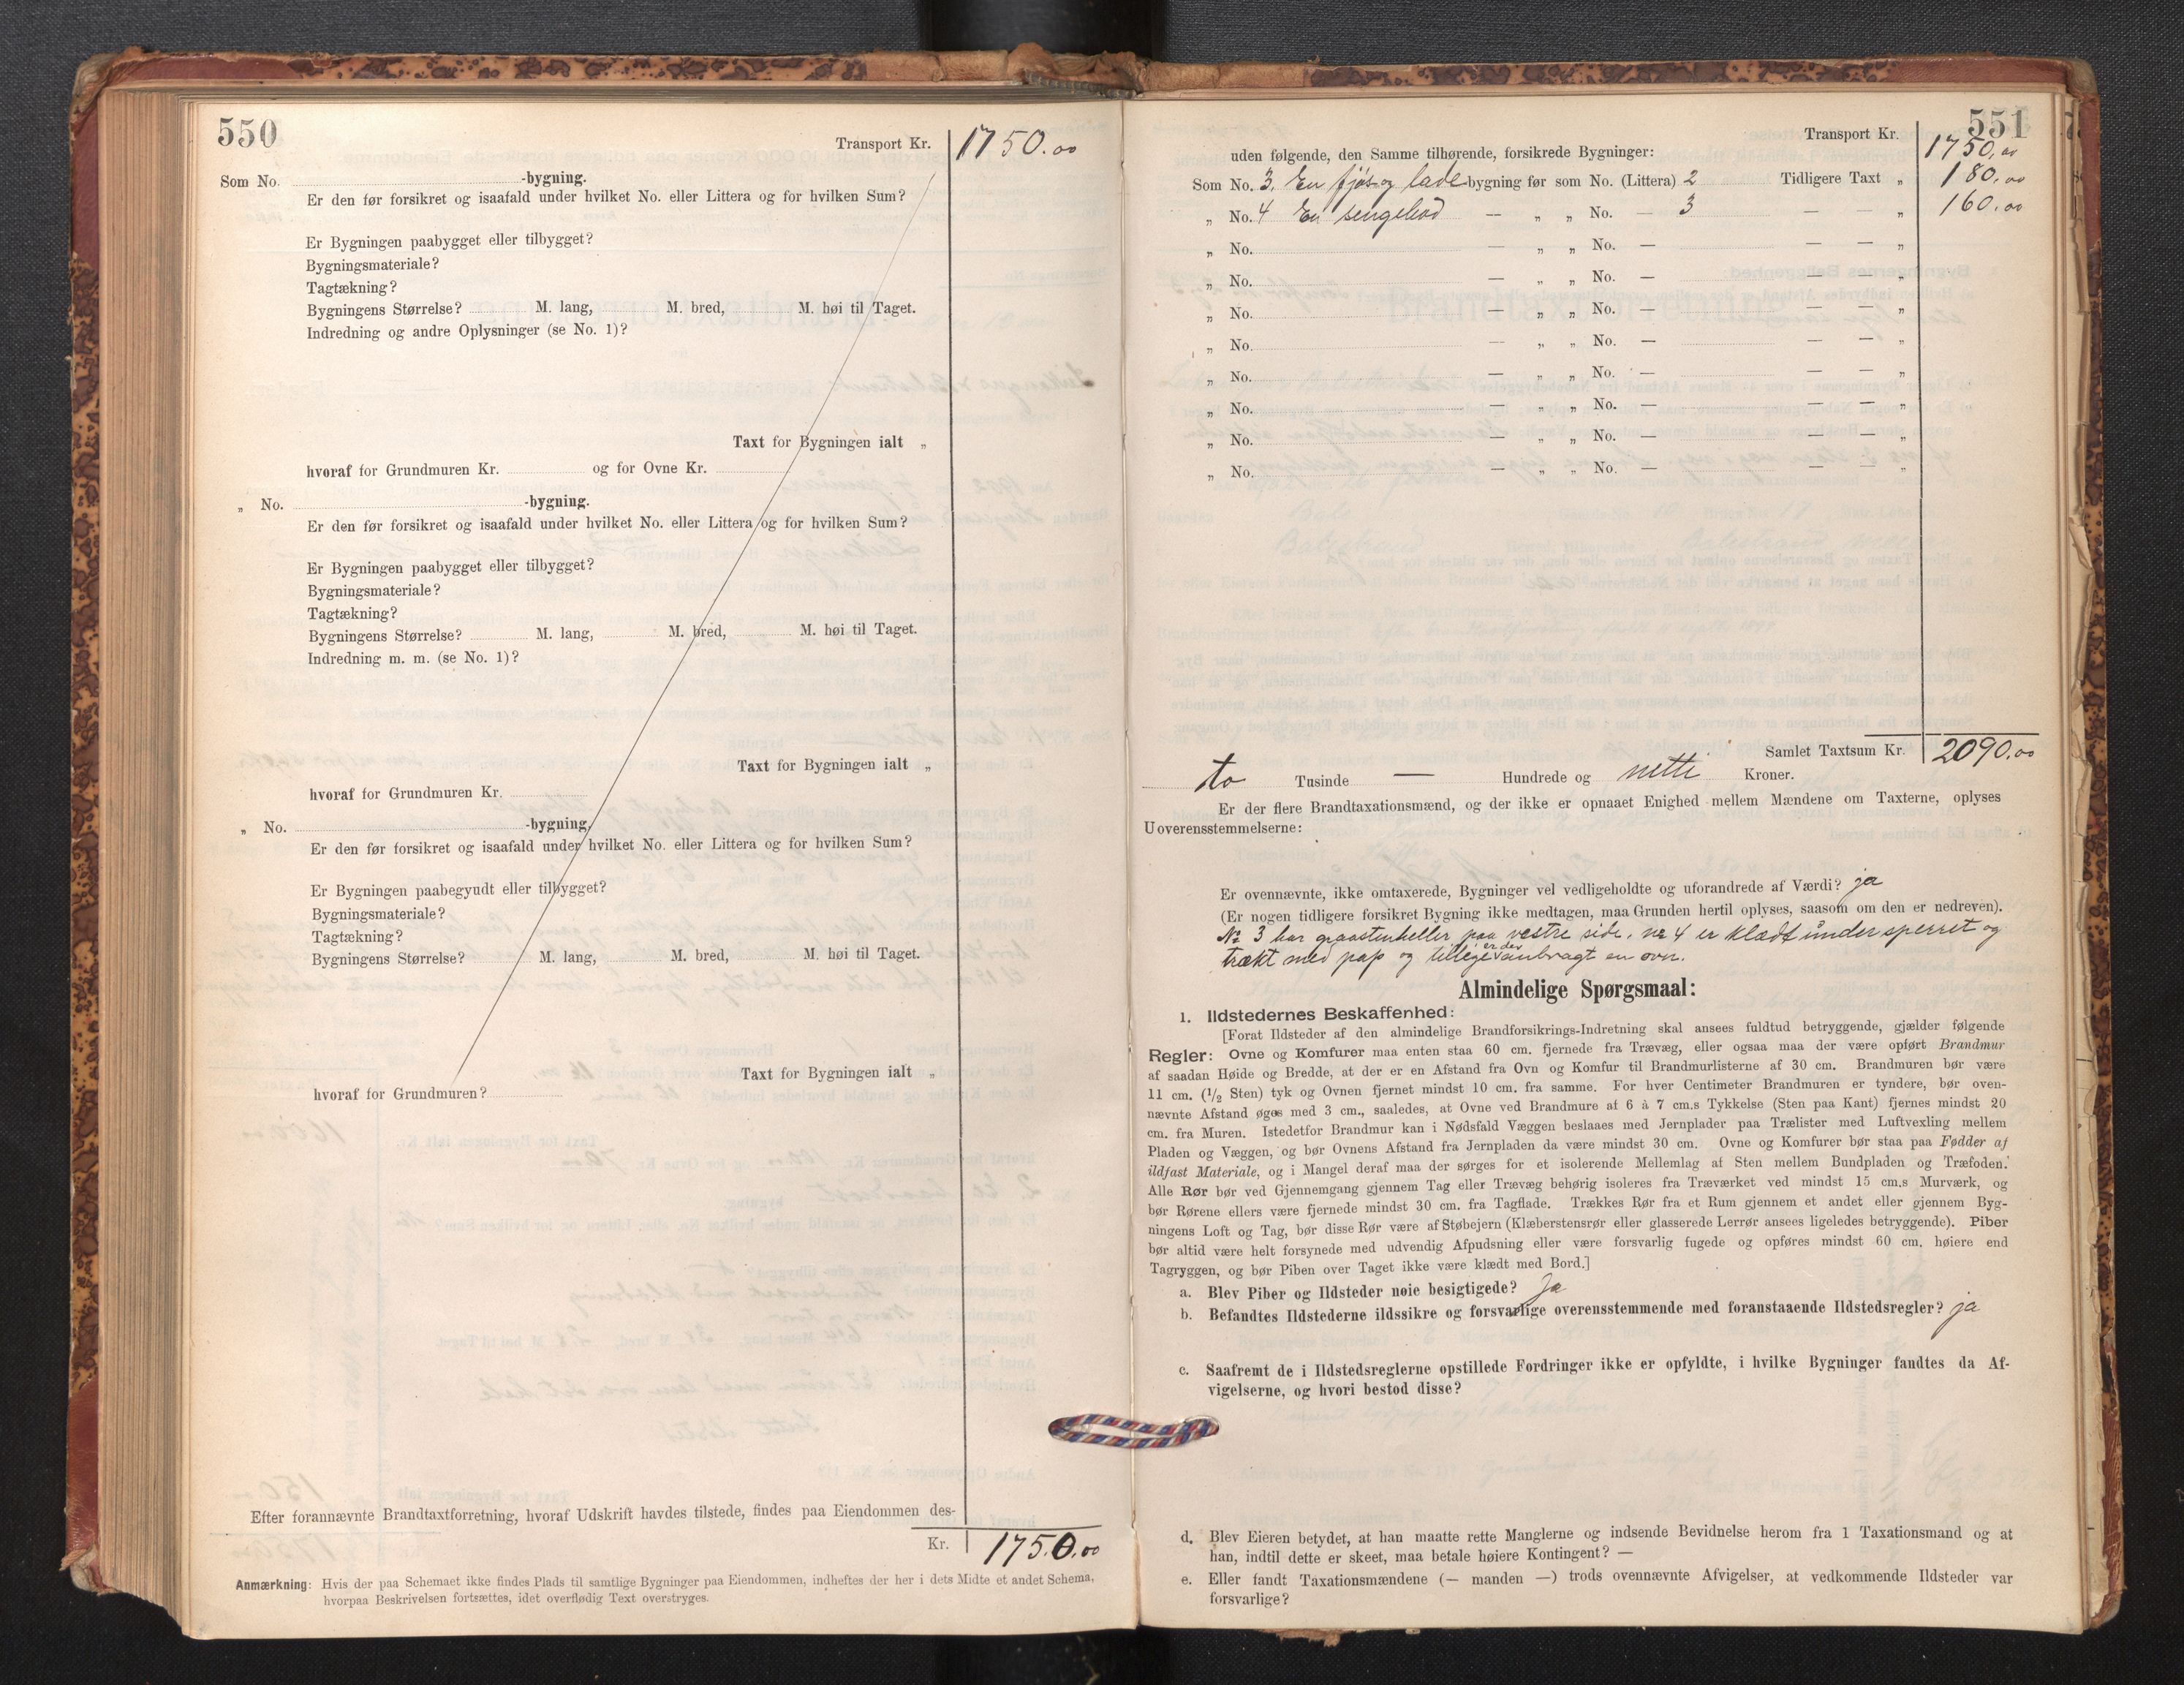 550
Transport Kr. 1750.00
Som No. -bygning.
Er den før forsikret og isaafald under hvilket No. eller Littera og for hvilken Sum?
Er Bygningen paabygget eller tilbygget?
Bygningsmateriale?
Tagtækning?
Bygningens Størrelse? M. lang, M. bred, M. høi til Taget.
Indredning og andre Oplysninger (se No. 1)?
Taxt for Bygningen ialt „
hvoraf for Grundmuren Kr. og for Ovne Kr.
„ No. -bygning.
Er den før forsikret og isaafald under hvilket No. eller Littera og for hvilken Sum?
Er Bygningen paabygget eller tilbygget?
Bygningsmateriale?
Tagtækning?
Bygningens Størrelse? M. lang, M. bred, M. høi til Taget.
Indredning m. m. (se No. 1)?
Taxt for Bygningen ialt „
hvoraf for Grundmuren Kr.
„ No. -bygning.
Er den før forsikret og isaafald under hvilket No. eller Littera og for hvilken Sum?
Er Bygningen paabegyudt eller tilbygget?
Bygningsmateriale?
Tagtækning?
Bygningens Størrelse? M. lang, M. bred, M. høi til Taget.
Taxt for Bygningen ialt „
hvoraf for Grundmuren?
Efter forannævnte Brandtaxtforretning, hvoraf Udskrift havdes tilstede, findes paa Eiendommen des-
Kr. 1750.00
Anmærkning: Hvis der paa Schemaet ikke findes Plads til samtlige Bygninger paa Eiendommen, indheftes der her i dets Midte et andet Schema,
hvorpaa Beskrivelsen fortsættes, idet overflødig Text overstryges.
551
Transport Kr. 1750.00
uden følgende, den Samme tilhørende, forsikrede Bygninger:
Som No. 3. En fjøs og lade bygning før som No. (Littera) 2 Tidligere Taxt „ 180.00
„ No. 4 En sengebod — „ „ No. — 3 — — „ 160.00
„ No. — „ „ No. — — — „
„ No. — „ „ No. — — — „
„ No. — „ „ No. — — — „
„ No. — „ „ No. — — — „
„ No. — „ „ No. — — — „
„ No. — „ „ No. — — — „
„ No. — „ „ No. — — — „
„ No. — „ „ No. — — — „
Samlet Taxtsum Kr. 2090.00
to Tusinde — Hundrede og nitti Kroner.
Er der flere Brandtaxationsmænd, og der ikke er opnaaet Enighed mellem Mændene om Taxterne, oplyses
Uoverensstemmelserne:
Er ovennævnte, ikke omtaxerede, Bygninger vel vedligeholdte og uforandrede af Værdi? ja
(Er nogen tidligere forsikret Bygning ikke medtagen, maa Grunden hertil oplyses, saasom om den er nedreven).
№ 3 har graastenheller paa vestre side. no 4 er klædt under sperret og
trækt med pap og tillige er der anbragt en ovn.
Almindelige Spørgsmaal:
1. Ildstedernes Beskaffenhed:
[Forat Ildsteder af den almindelige Brandforsikrings-Indretning skal ansees fuldtud betryggende, gjælder følgende
Regler: Ovne og Komfurer maa enten staa 60 cm. fjernede fra Trævæg, eller ogsaa maa der være opført Brandmur
af saadan Høide og Bredde, at der er en Afstand fra Ovn og Komfur til Brandmurlisterne af 30 cm. Brandmuren bør være
11 cm. (1/2 Sten) tyk og Ovnen fjernet mindst 10 cm. fra samme. For hver Centimeter Brandmuren er tyndere, bør oven-
nævnte Afstand øges med 3 cm., saaledes, at Ovne ved Brandmure af 6 à 7 cm.s Tykkelse (Sten paa Kant) fjernes mindst 20
cm. fra Muren. Istedetfor Brandmur kan i Nødsfald Væggen beslaaes med Jernplader paa Trælister med Luftvexling mellem
Pladen og Væggen, og bør Ovnens Afstand fra Jernpladen da være mindst 30 cm. Ovne og Komfurer bør staa paa Fødder af
ildfast Materiale, og i Mangel deraf maa der sørges for et isolerende Mellemlag af Sten mellem Bundpladen og Træfoden.
Alle Rør bør ved Gjennemgang gjennem Tag eller Trævæg behørig isoleres fra Træværket ved mindst 15 cm.s Murværk, og
bør Rørene ellers være fjernede mindst 30 cm. fra Tagflade. Trækkes Rør fra et Rum gjennem et andet eller gjennem Byg-
ningens Loft og Tag, bør disse Rør være af Støbejern (Klæberstensrør eller glasserede Lerrør ansees ligeledes betryggende). Piber
bør altid være helt forsynede med udvendig Afpudsning eller være forsvarlig fugede og opføres mindst 60 cm. høiere end
Tagryggen, og bør Piben over Taget ikke være klædt med Bord.]
a. Blev Piber og Ildsteder nøie besigtigede? Ja
b. Befandtes Ildstederne ildssikre og forsvarlige overensstemmende med foranstaaende Ildstedsregler? ja
c. Saafremt de i Ildstedsreglerne opstillede Fordringer ikke er opfyldte, i hvilke Bygninger fandtes da Af-
vigelserne, og hvori bestod disse?
d. Blev Eieren betydet, at han maatte rette Manglerne og indsende Bevidnelse herom fra 1 Taxationsmand og at
han, indtil dette er skeet, maa betale høiere Kontingent? —
e. Eller fandt Taxationsmændene (— manden —) trods ovennævnte Afvigelser, at vedkommende Ildsteder var
forsvarlige?